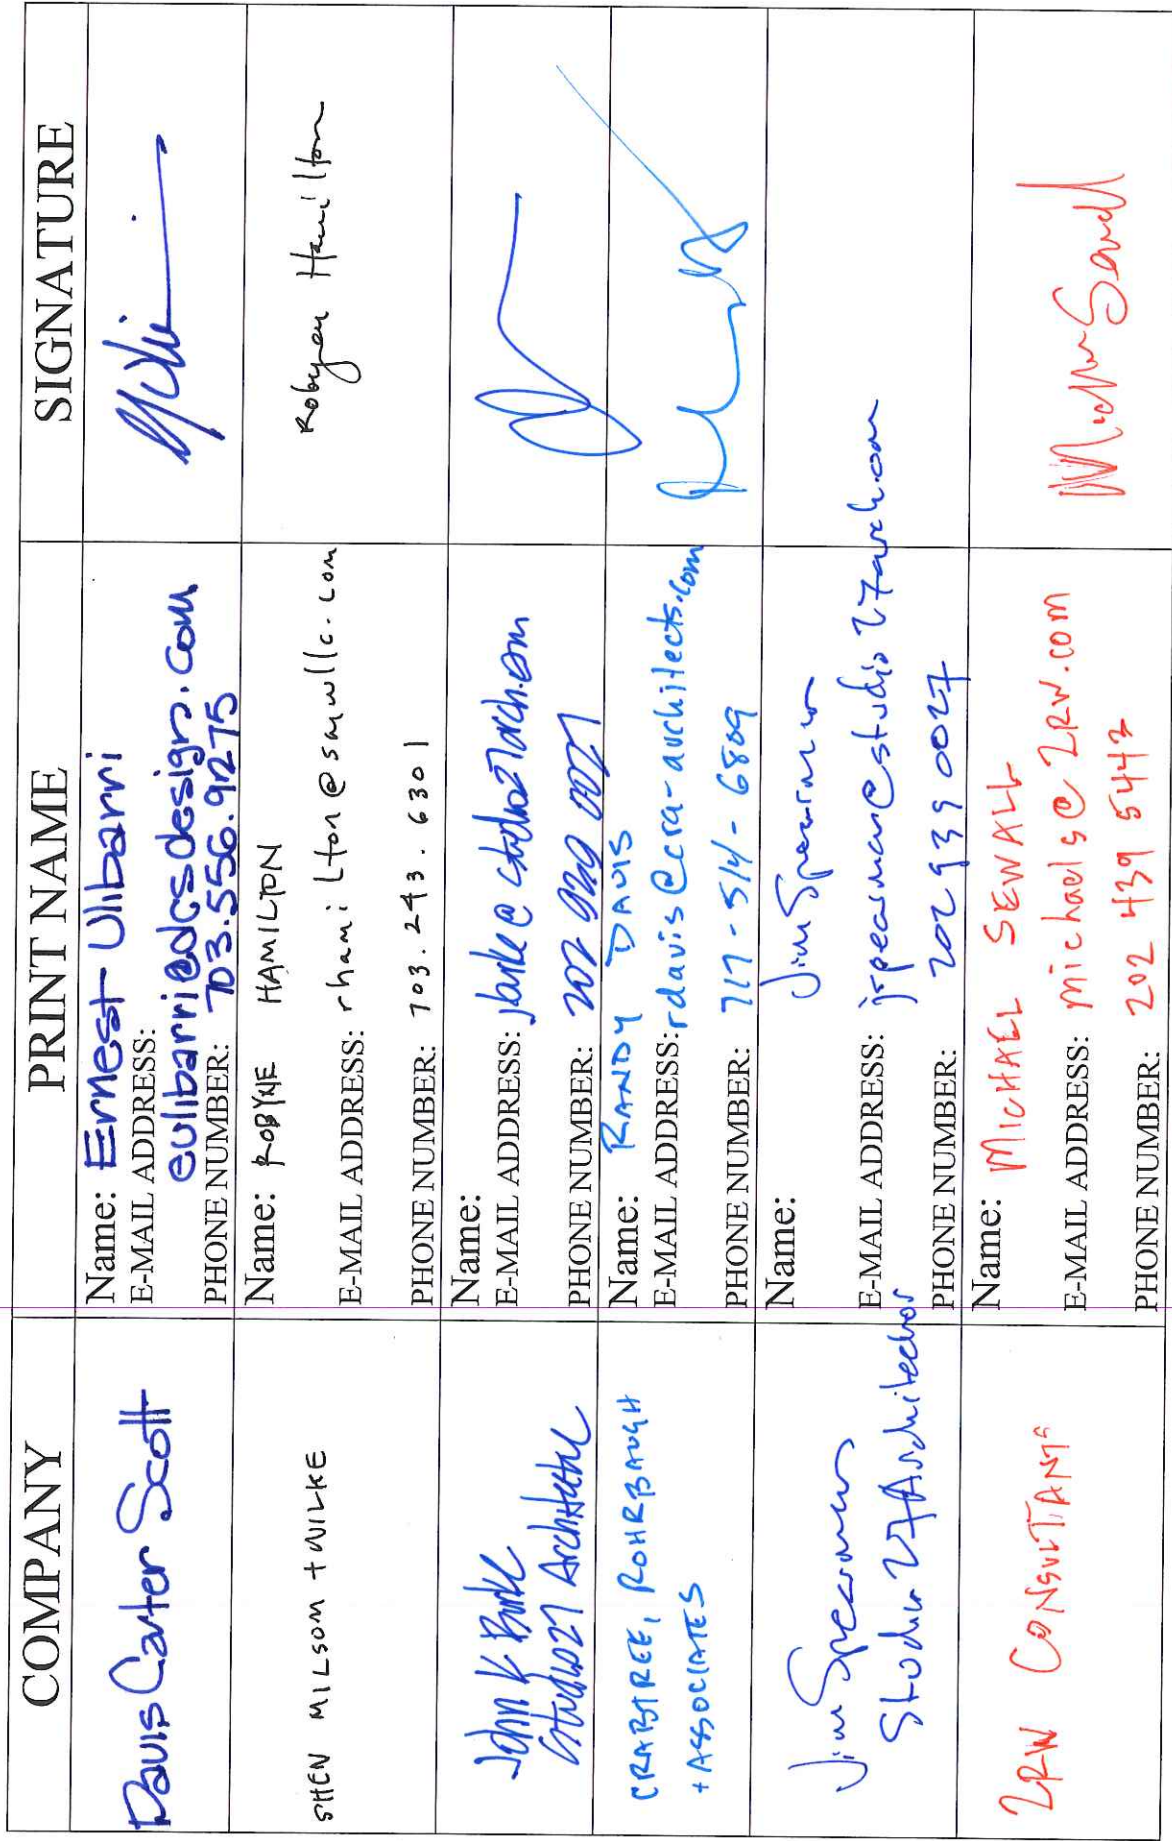 COMPANY PRINT NAME SIGNATURE
Davis Carter Scott
Name: Ernest Ulibarri
E-MAIL ADDRESS:
eulibarri@dcsdesign.com
PHONE NUMBER: 703.556.9275
SHEN MILSOM + WILKE
Name: ROBYNE HAMILTON
E-MAIL ADDRESS: rhamilton@smwllc.com
PHONE NUMBER: 703.243.6301
Robyne Hamilton
John K Burke
Studio27 Architecture
Name:
E-MAIL ADDRESS: jburke@studio27arch.com
PHONE NUMBER: 202 939 0027
CRABTREE, ROHRBAUGH
+ ASSOCIATES
Name: RANDY DAVIS
E-MAIL ADDRESS: rdavis@cra-architects.com
PHONE NUMBER: 717-514-6809
Jim Spearman
Studio 27 Architecture
Name: Jim Spearman
E-MAIL ADDRESS: jspearman@studio27arch.com
PHONE NUMBER: 202 939 0027
2RW CONSULTANTS
Name: MICHAEL SEWALL
E-MAIL ADDRESS: michaels@2RW.com
PHONE NUMBER: 202 439 5442